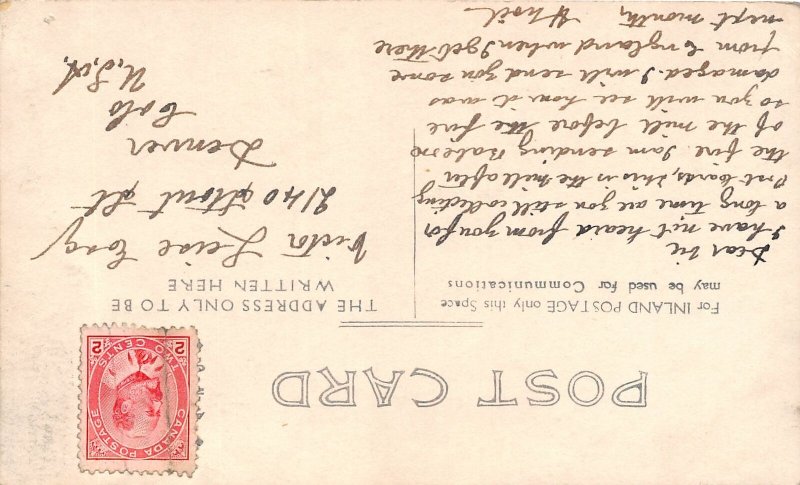 POST CARD
For INLAND POSTAGE only this Space
may be used for Communications
THE ADDRESS ONLY TO BE
WRITTEN HERE
Dear Vic
I have not heard from you for
a long time are you still collecting
Post Cards, this is the mill after
the fire. I am sending Babe one
of the mill before the fire
so you will see how it was
damaged. I will send you some
from England when I get there
next month,
Victor Leise Esq
2140 Stout St
Denver
Colo
U.S.A.
CANADA POSTAGE
2 TWO CENTS 2